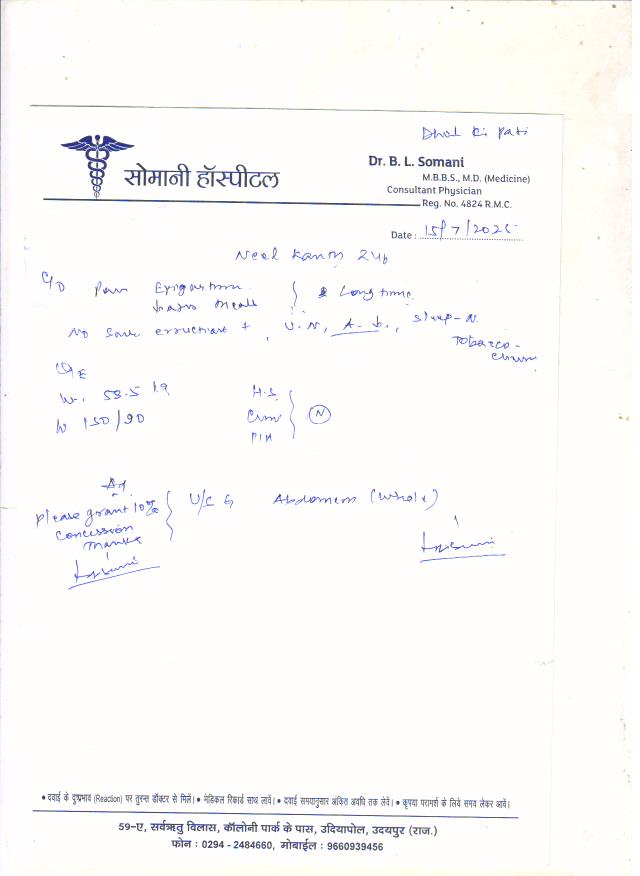 Dhol Ki Pati
सोमानी हॉस्पीटल
Dr. B. L. Somani
M.B.B.S., M.D. (Medicine)
Consultant Physician
Reg. No. 4824 R.M.C.
Date : 15/7/2025
Neel
C/O Pain Epigastrium
Long time
No Sour eructions +, U-N, A-b., Sleep-N.
Tobacco-
O/E
W. 53.5
130/90
H.S.
N
Ad
Please grant 10%
Concession
Thanks
Abdomen (Whole)
• दवाई के दुष्प्रभाव (Reaction) पर तुरन्त डॉक्टर से मिलें। • मेडिकल रिकार्ड साथ लावें। • दवाई समयानुसार अंकित अवधि तक लेवें। • कृपया परामर्श के लिये समय लेकर आवें।
59-ए, सर्वऋतु विलास, कॉलोनी पार्क के पास, उदियापोल, उदयपुर (राज.)
फोन : 0294 - 2484660, मोबाईल : 9660939456